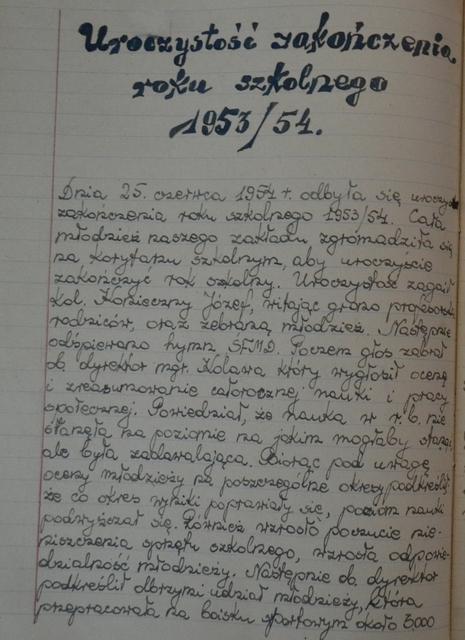 Uroczystość zakończenia
roku szkolnego
1953/54.
Dnia 25. czerwca 1954 r. odbyła się
zakończenia roku szkolnego 1953/54. Cała
młodzież naszego zakładu zgromadziła się
na korytarzu szkolnym, aby uroczyście
zakończyć rok szkolny. Uroczystość zagaił
kol. Konieczny Józef, witając grono
rodziców, oraz zebraną młodzież. Następnie
odśpiewano hymn ŚFMD. Poczem głos zabrał
ob. dyrektor mgr. Kolawa który wygłosił ocenę
i zreasumowanie całorocznej nauki i pracy
społecznej. Powiedział, że nauka w r. b. nie
stanęła na poziomie na jakim mogłaby
ale była zadawalająca. Biorąc pod uwagę
oceny młodzieży na poszczególne okresy, podkreślił
że co okres wyniki poprawiały się, poziom nauki
podwyższał się. Również wzrosło poczucie nie-
piszczenia sprzętu szkolnego, wzrosła odpowie-
dzialność młodzieży. Następnie ob. dyrektor
podkreślił olbrzymi udział młodzieży, która
przepracowała na boisku sportowym około 3.000